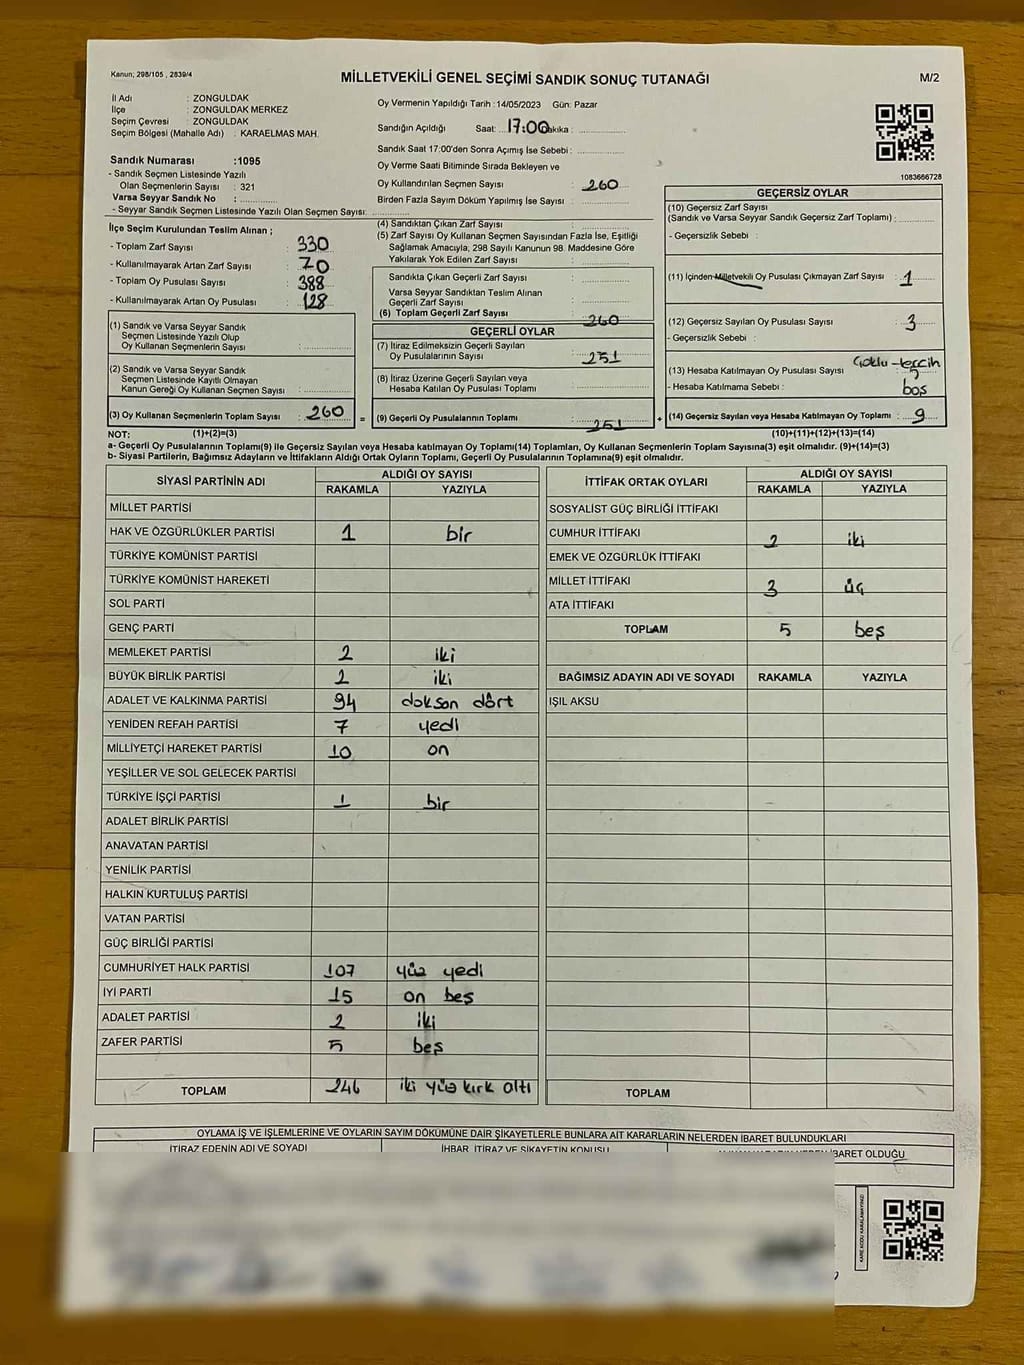 Kanun; 298/105 , 2839/4
MİLLETVEKİLİ GENEL SEÇİMİ SANDIK SONUÇ TUTANAĞI
M/2
İl Adı : ZONGULDAK
İlçe : ZONGULDAK MERKEZ
Seçim Çevresi : ZONGULDAK
Seçim Bölgesi (Mahalle Adı) : KARAELMAS MAH.
Sandık Numarası :1095
- Sandık Seçmen Listesinde Yazılı
Olan Seçmenlerin Sayısı : 321
Varsa Seyyar Sandık No :
- Seyyar Sandık Seçmen Listesinde Yazılı Olan Seçmen Sayısı:
Oy Vermenin Yapıldığı Tarih :14/05/2023 Gün: Pazar
Sandığın Açıldığı Saat: 17:00 Dakika :
Sandık Saat 17:00'den Sonra Açımış İse Sebebi :
Oy Verme Saati Bitiminde Sırada Bekleyen ve
Oy Kullandırılan Seçmen Sayısı : 260
Birden Fazla Sayım Döküm Yapılmış İse Sayısı :
1083666728
İlçe Seçim Kurulundan Teslim Alınan ;
- Toplam Zarf Sayısı : 330
- Kullanılmayarak Artan Zarf Sayısı : 70
- Toplam Oy Pusulası Sayısı : 388
- Kullanılmayarak Artan Oy Pusulası : 128
(1) Sandık ve Varsa Seyyar Sandık
Seçmen Listesinde Yazılı Olup
Oy Kullanan Seçmenlerin Sayısı :
(2) Sandık ve Varsa Seyyar Sandık
Seçmen Listesinde Kayıtlı Olmayan
Kanun Gereği Oy Kullanan Seçmen Sayısı :
(3) Oy Kullanan Seçmenlerin Toplam Sayısı : 260 =
(4) Sandıktan Çıkan Zarf Sayısı :
(5) Zarf Sayısı Oy Kullanan Seçmen Sayısından Fazla İse, Eşitliği
Sağlamak Amacıyla, 298 Sayılı Kanunun 98. Maddesine Göre
Yakılarak Yok Edilen Zarf Sayısı :
Sandıkta Çıkan Geçerli Zarf Sayısı :
Varsa Seyyar Sandıktan Teslim Alınan
Geçerli Zarf Sayısı :
(6) Toplam Geçerli Zarf Sayısı : 260
GEÇERLİ OYLAR
(7) İtiraz Edilmeksizin Geçerli Sayılan
Oy Pusulalarının Sayısı : 251
(8) İtiraz Üzerine Geçerli Sayılan veya
Hesaba Katılan Oy Pusulası Toplamı :
(9) Geçerli Oy Pusulalarının Toplamı : 251 +
GEÇERSİZ OYLAR
(10) Geçersiz Zarf Sayısı
(Sandık ve Varsa Seyyar Sandık Geçersiz Zarf Toplamı) :
- Geçersizlik Sebebi :
(11) İçinden Milletvekili Oy Pusulası Çıkmayan Zarf Sayısı : 1
(12) Geçersiz Sayılan Oy Pusulası Sayısı : 3
- Geçersizlik Sebebi : Çoklu-tercih
(13) Hesaba Katılmayan Oy Pusulası Sayısı : 5
- Hesaba Katılmama Sebebi : boş
(14) Geçersiz Sayılan veya Hesaba Katılmayan Oy Toplamı : 9
NOT: (1)+(2)=(3) (10)+(11)+(12)+(13)=(14)
a- Geçerli Oy Pusulalarının Toplamı(9) ile Geçersiz Sayılan veya Hesaba katılmayan Oy Toplamı(14) Toplamları, Oy Kullanan Seçmenlerin Toplam Sayısına(3) eşit olmalıdır. (9)+(14)=(3)
b- Siyasi Partilerin, Bağımsız Adayların ve İttifakların Aldığı Ortak Oyların Toplamı, Geçerli Oy Pusulalarının Toplamına(9) eşit olmalıdır.
SİYASİ PARTİNİN ADI ALDIĞI OY SAYISI
RAKAMLA YAZIYLA
MİLLET PARTİSİ
HAK VE ÖZGÜRLÜKLER PARTİSİ 1 bir
TÜRKİYE KOMÜNİST PARTİSİ
TÜRKİYE KOMÜNİST HAREKETİ
SOL PARTİ
GENÇ PARTİ
MEMLEKET PARTİSİ 2 iki
BÜYÜK BİRLİK PARTİSİ 2 iki
ADALET VE KALKINMA PARTİSİ 94 doksan dört
YENİDEN REFAH PARTİSİ 7 yedi
MİLLİYETÇİ HAREKET PARTİSİ 10 on
YEŞİLLER VE SOL GELECEK PARTİSİ
TÜRKİYE İŞÇİ PARTİSİ 1 bir
ADALET BİRLİK PARTİSİ
ANAVATAN PARTİSİ
YENİLİK PARTİSİ
HALKIN KURTULUŞ PARTİSİ
VATAN PARTİSİ
GÜÇ BİRLİĞİ PARTİSİ
CUMHURİYET HALK PARTİSİ 107 yüz yedi
İYİ PARTİ 15 on beş
ADALET PARTİSİ 2 iki
ZAFER PARTİSİ 5 beş
TOPLAM 246 iki yüz kırk altı
İTTİFAK ORTAK OYLARI ALDIĞI OY SAYISI
RAKAMLA YAZIYLA
SOSYALİST GÜÇ BİRLİĞİ İTTİFAKI
CUMHUR İTTİFAKI 2 iki
EMEK VE ÖZGÜRLÜK İTTİFAKI
MİLLET İTTİFAKI 3 üç
ATA İTTİFAKI
TOPLAM 5 beş
BAĞIMSIZ ADAYIN ADI VE SOYADI RAKAMLA YAZIYLA
IŞIL AKSU
TOPLAM
OYLAMA İŞ VE İŞLEMLERİNE VE OYLARIN SAYIM DÖKÜMÜNE DAİR ŞİKAYETLERLE BUNLARA AİT KARARLARIN NELERDEN İBARET BULUNDUKLARI
İTİRAZ EDENİN ADI VE SOYADI
İHBAR, İTİRAZ VE ŞİKAYETİN KONUSU
İBARET OLDUĞU
KARE KODU KARALAMAYINIZ!